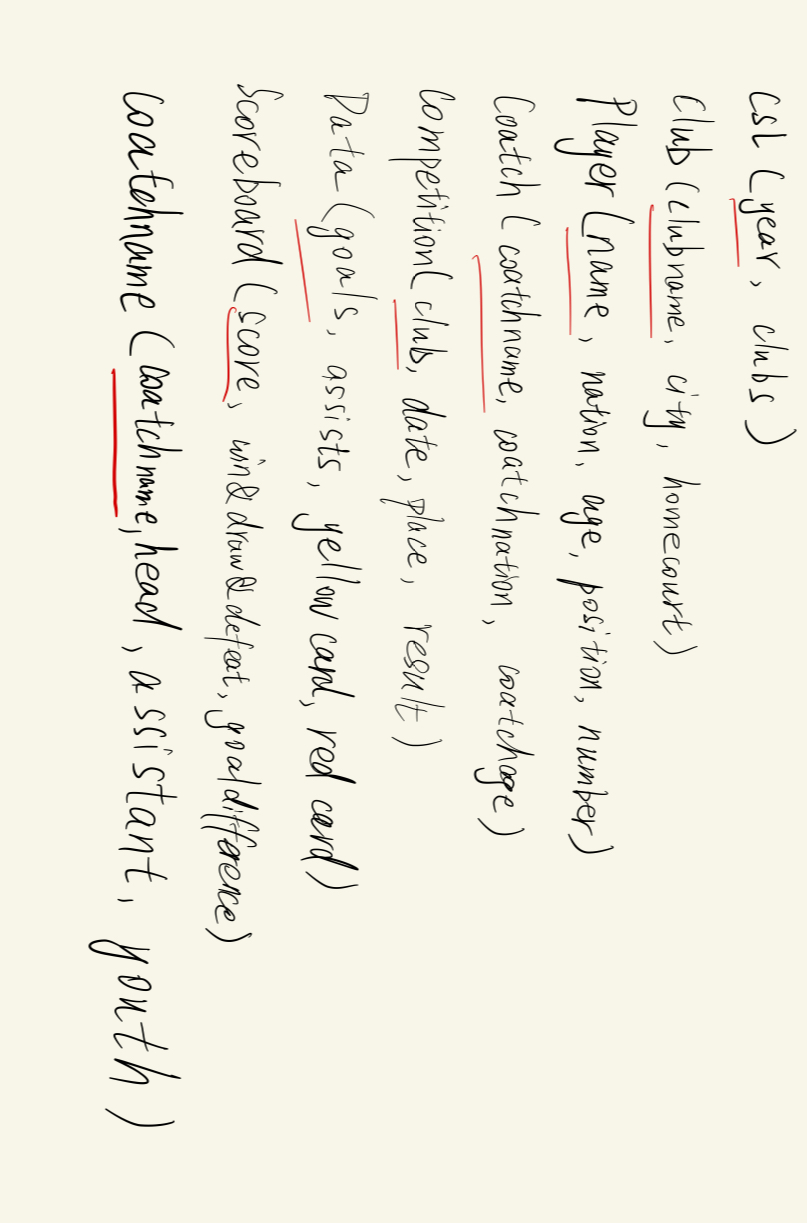 CSL (year, clubs)
Club (clubname, city, homecourt)
Player (name, nation, age, position, number)
Coatch (coatchname, coatchnation, coatchage)
Competition (club, date, place, result)
Data (goals, assists, yellow card, red card)
Scoreboard (score, win&draw&defeat, goaldifference)
Coatchname (coatchname, head, assistant, youth)